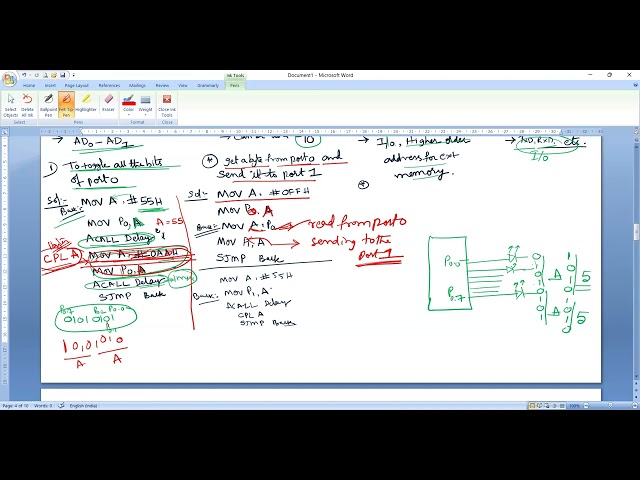 Document1 - Microsoft Word
Ink Tools
Home
Insert
Page Layout
References
Mailings
Review
View
Grammarly
Pens
Select Objects
Delete All Ink
Ballpoint Pen
Felt Tip Pen
Highlighter
Eraser
Color
Weight
Close Ink Tools
AD0 - AD7
10
I/O, Higher order
address for ext
memory.
I/O
1) To toggle all the bits
of port 0
Sol:- MOV A, #55H
Back: MOV P0, A A=55
ACALL Delay
CPL A
MOV A, #0AAH
MOV P0, A
ACALL Delay
SJMP Back
P0.7
0101 0101
1010 1010
A A
* get a byte from port 0 and
send it to port 1
Sol:- MOV A, #0FFH
MOV P0, A
Back: MOV A, P0 read from port 0
MOV P1, A sending to the
port 1
SJMP Back
MOV A, #55H
Back: MOV P1, A
ACALL Delay
CPL A
SJMP Back
*
P0.0
P0.7
A 5
A 5
Page: 4 of 10
Words: 0
English (India)
100%